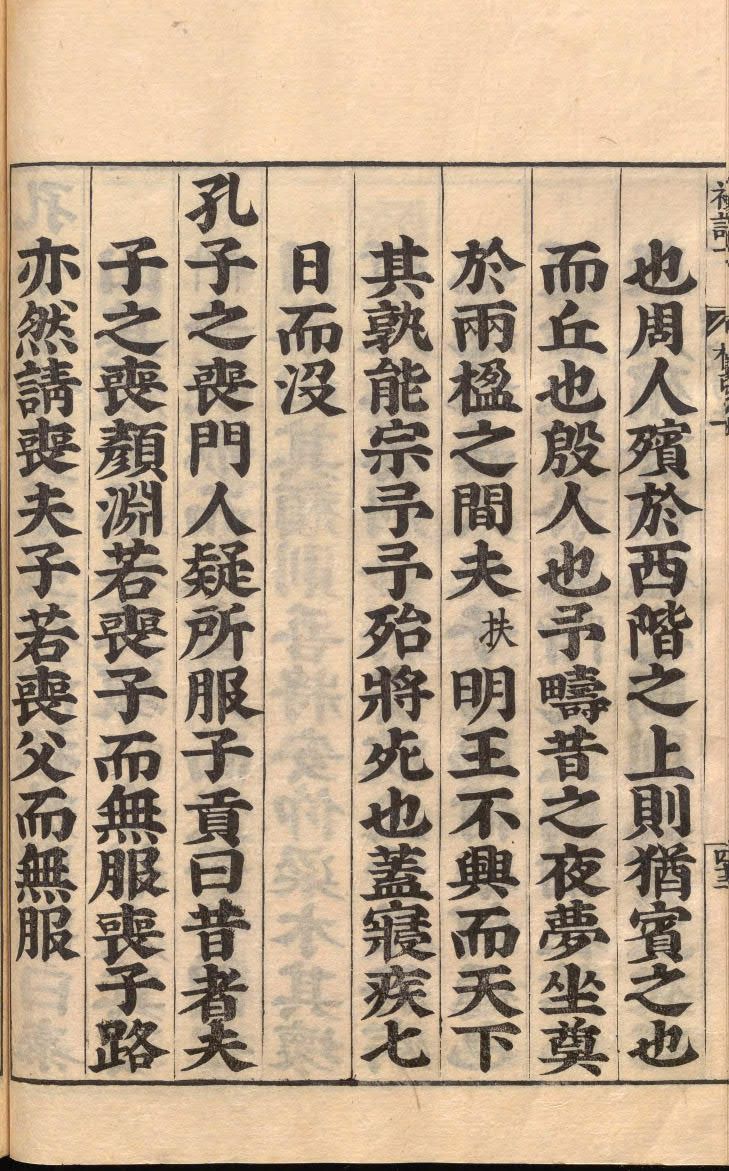 也周人殯於西階之上則猶賓之也
而丘也殷人也予疇昔之夜夢坐奠
於兩楹之間夫扶明王不興而天下
其孰能宗予予殆將死也蓋寢疾七
日而沒
孔子之喪門人疑所服子貢曰昔者夫
子之喪顏淵若喪子而無服喪子路
亦然請喪夫子若喪父而無服